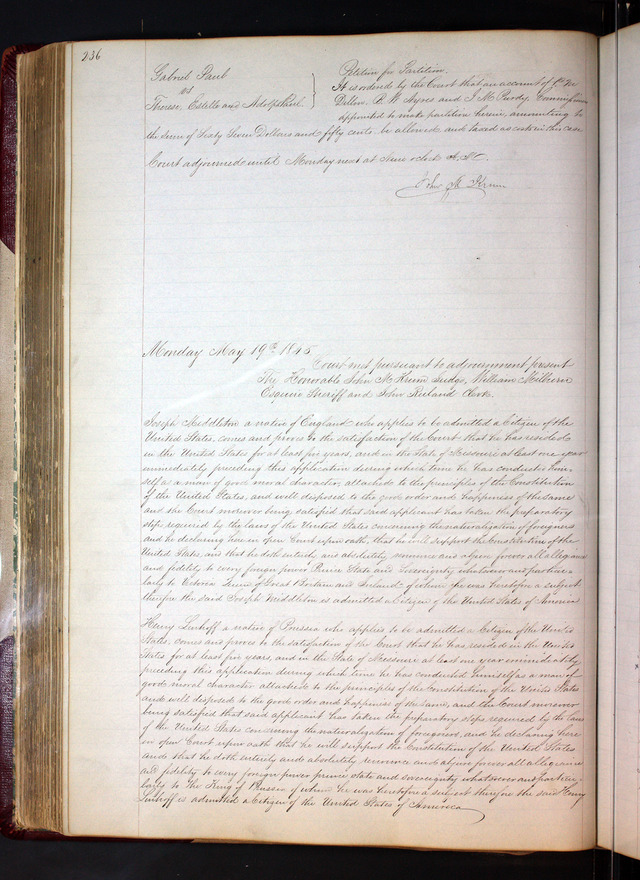 236
Gabriel Paul
vs
Therese, Estelle and Adolph Paul
Petition for Partition.
It is ordered by the Court that an account of
Dillon, R. W. Ayres and J. M. Purdy, Commissioners
appointed to make partition herein, amounting to
the sum of Sixty Seven Dollars and fifty cents be allowed and taxed as costs in this case
Court adjourned until Monday next at Nine o'clock A.M.
John M Krum
Monday May 19th 1845
Court met pursuant to adjournment present
The Honorable John M Krum Judge, William Milburn
Esquire Sheriff and John Ruland Clerk.
Joseph Middleton a native of England who applies to be admitted a Citizen of the
United States, comes and proves to the satisfaction of the Court that he has resided
in the United States for at least five years, and in the State of Missouri at least one year
immediately preceding this application during which time he has conducted him-
self as a man of good moral character attached to the principles of the Constitution
of the United States, and well disposed to the good order and happiness of the same
and the Court moreover being satisfied that said applicant has taken the preparatory
steps required by the laws of the United States concerning the naturalization of foreigners
and he declaring here in open Court upon oath, that he will support the Constitution of the
United States, and that he doth entirely and absolutely renounce and abjure forever all allegiance
and fidelity to every foreign power Prince State and Sovereignty whatsoever and particu-
larly to Victoria Queen of Great Britain and Ireland of whom he was heretofore a subject
therefore the said Joseph Middleton is admitted a Citizen of the United States of America
Henry Linhoff a native of Prussia who applies to be admitted a Citizen of the United
States, comes and proves to the satisfaction of the Court that he has resided in the United
States for at least five years, and in the State of Missouri at least one year immediately
preceding this application during which time he has conducted himself as a man of
good moral character attached to the principles of the Constitution of the United States
and well disposed to the good order and happiness of the same, and the Court moreover
being satisfied that said applicant has taken the preparatory steps required by the laws
of the United States concerning the naturalization of foreigners, and he declaring here
in open Court upon oath that he will support the Constitution of the United States
and that he doth entirely and absolutely renounce and abjure forever all allegiance
and fidelity to every foreign power prince state and sovereignty whatsoever and particu-
larly to the King of Prussia of whom he was heretofore a subject therefore the said Henry
Linhoff is admitted a Citizen of the United States of America